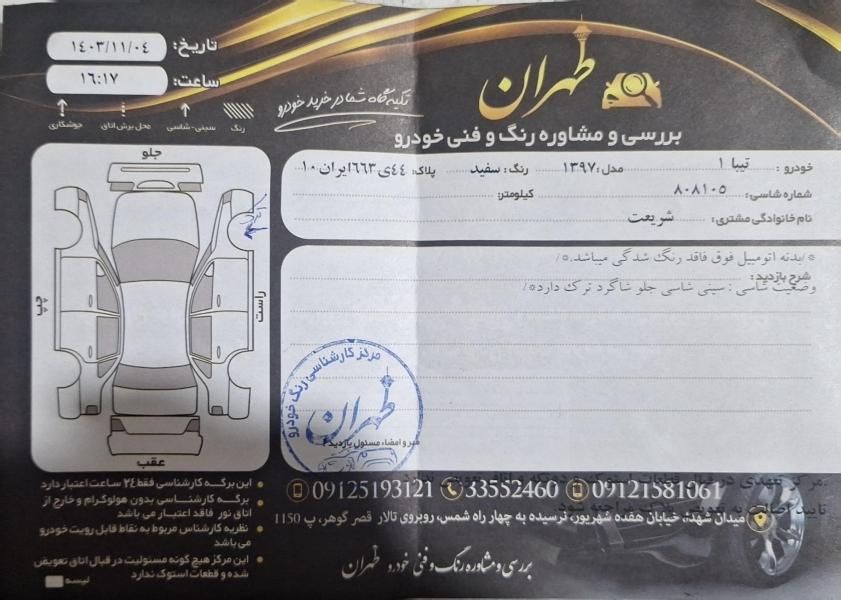 تاریخ: ۱۴۰۳/۱۱/۰۴
ساعت: ۱۶:۱۷
رنگ
سینی-شاسی
محل برش اتاق
جوشکاری
تکیه گاه شما در خرید خودرو
طهران
بررسی و مشاوره رنگ و فنی خودرو
خودرو: تیبا ۱ مدل: ۱۳۹۷ رنگ: سفید پلاک: ۴۴ی۶۶۳ایران۱۰
شماره شاسی: ۸۰۸۱۰۵ کیلومتر:
نام خانوادگی مشتری: شریعت
جلو
چپ
راست
عقب
*/بدنه اتومبیل فوق فاقد رنگ شدگی میباشد./*
شرح بازدید:
وضعیت شاسی : سینی شاسی جلو شاگرد ترک دارد/*
مرکز کارشناسی رنگ خودرو
طهران
مهر و امضاء مسئول بازدید
این برگه کارشناسی فقط ۲۴ ساعت اعتبار دارد
برگه کارشناسی بدون هولوگرام و خارج از
اتاق نور فاقد اعتبار می باشد
نظریه کارشناس مربوط به نقاط قابل رویت خودرو
می باشد
این مرکز هیچ گونه مسئولیت در قبال اتاق تعویض
شده و قطعات استوک ندارد
لیسه
09125193121 33552460 09121581061
میدان شهدا، خیابان هفده شهریور، نرسیده به چهار راه شمس، روبروی تالار قصر گوهر، پ 1150
بررسی و مشاوره رنگ و فنی خودرو طهران